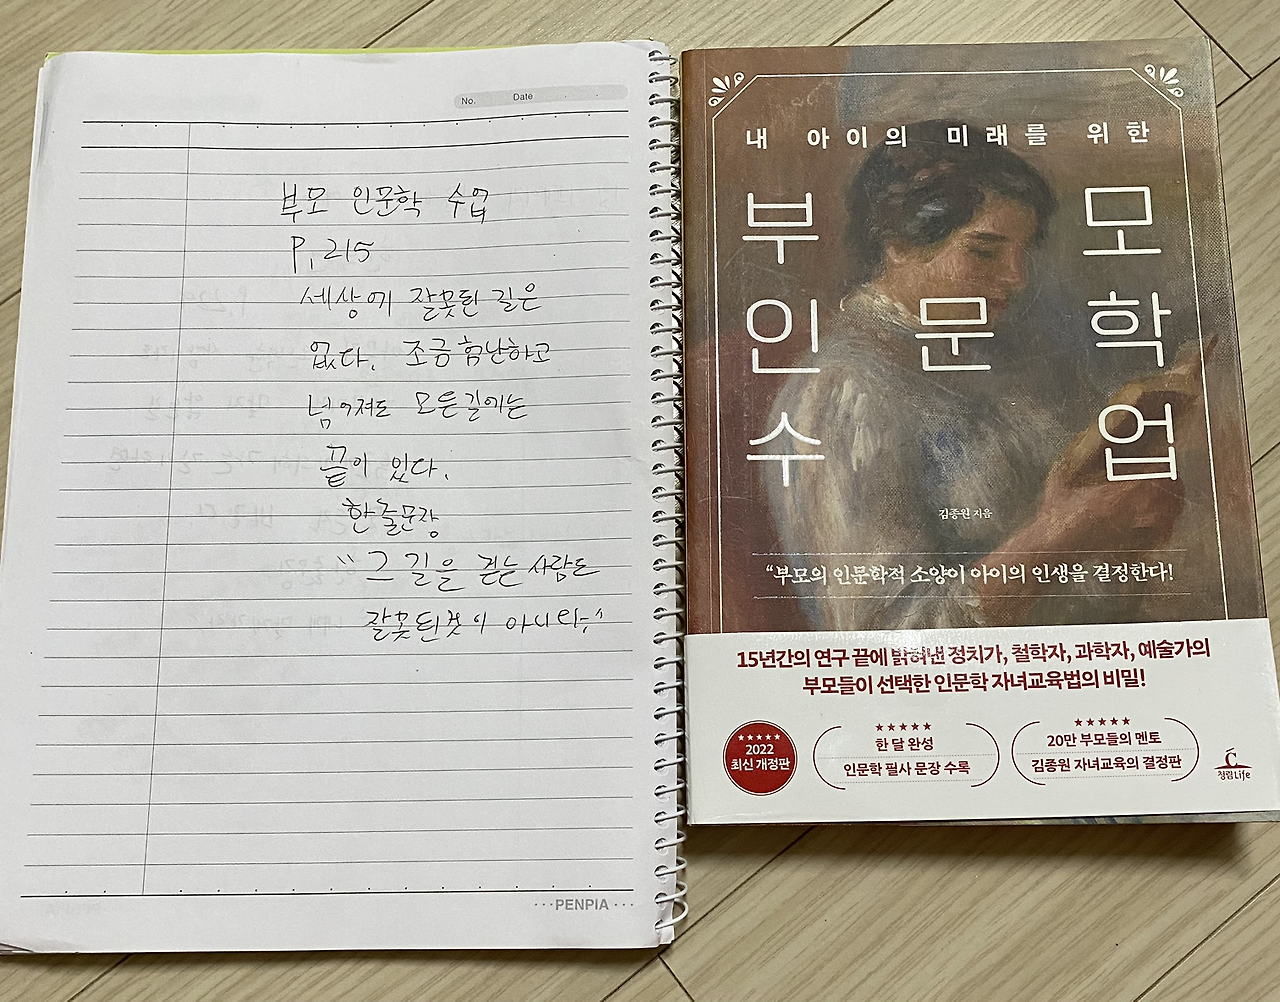 No. Date
부모 인문학 수업
P.215
세상에 잘못된 길은
없다. 조금 험난하고
넘어져도 모든길에는
끝이 있다.
한줄문장
"그 길을 걷는 사람도
잘못된것이 아니다."
···PENPIA···
내 아이의 미래를 위한
부모
인문학
수업
김종원 지음
"부모의 인문학적 소양이 아이의 인생을 결정한다!
15년간의 연구 끝에 밝혀낸 정치가, 철학자, 과학자, 예술가의
부모들이 선택한 인문학 자녀교육법의 비밀!
★★★★★
2022
최신 개정판
★★★★★
한 달 완성
인문학 필사 문장 수록
★★★★★
20만 부모들의 멘토
김종원 자녀교육의 결정판
청림Life